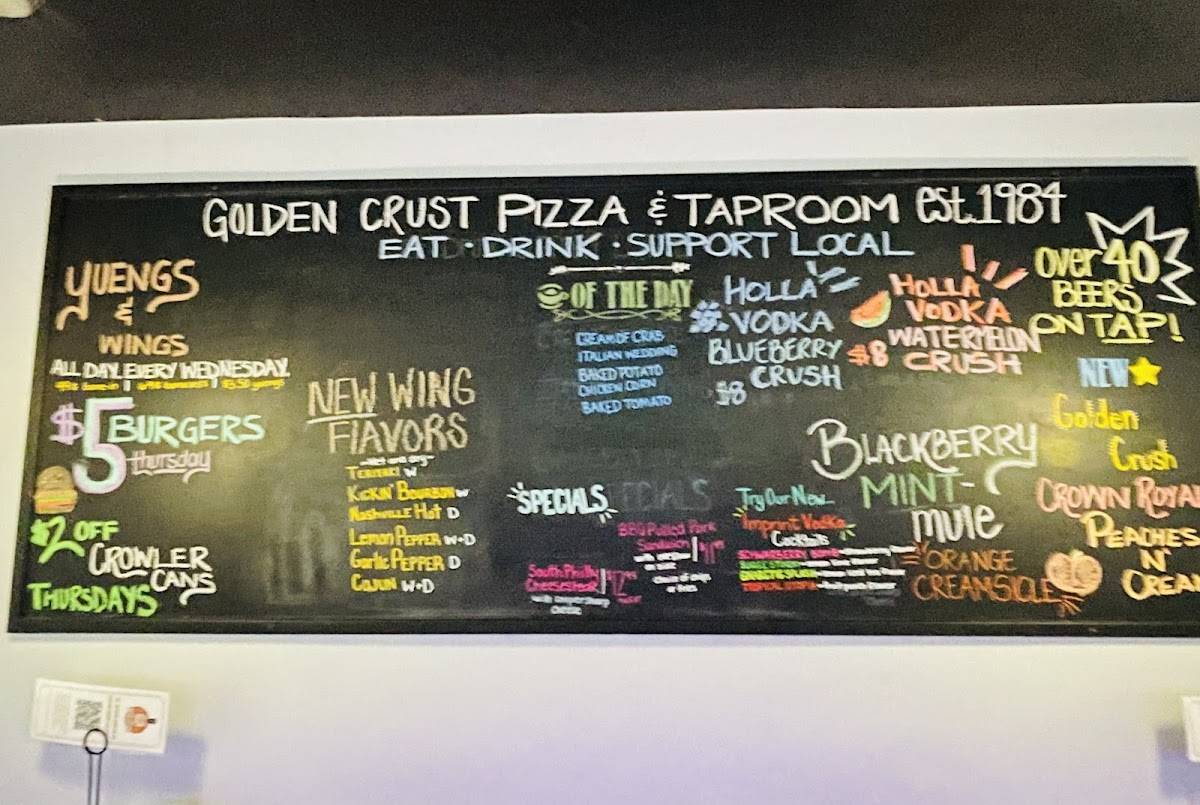 GOLDEN CRUST PIZZA & TAPROOM est. 1984
EAT · DRINK · SUPPORT LOCAL
YUENGS
&
WINGS
ALL DAY. EVERY WEDNESDAY.
$5 BURGERS
thursday
$2 OFF
CROWLER
CANS
THURSDAYS
NEW WING
FlAVORS
TERIYAKI W
KICKIN' BOURBON W
NASHVILLE HOT D
LEMON PEPPER W+D
Garlic PEPPER D
CAJUN W+D
OF THE DAY
CREAM OF CRAB
ITALIAN WEDDING
BAKED POTATO
CHICKEN CORN
BAKED TOMATO
SPECIALS
BBQ Pulled Pork
Sandwich
South Philly
Cheesesteak
HOLLA
VODKA
BLUEBERRY
CRUSH
$8
HOLLA
VODKA
WATERMELON
$8 CRUSH
Try Our New...
Imprint Vodka
Cocktails
BLACKBERRY
MINT-
mule
ORANGE
CREAMSICLE
over 40
BEERS
ON TAP!
NEW
Golden
Crush
CROWN ROYA
PEACHES
N'
CREA